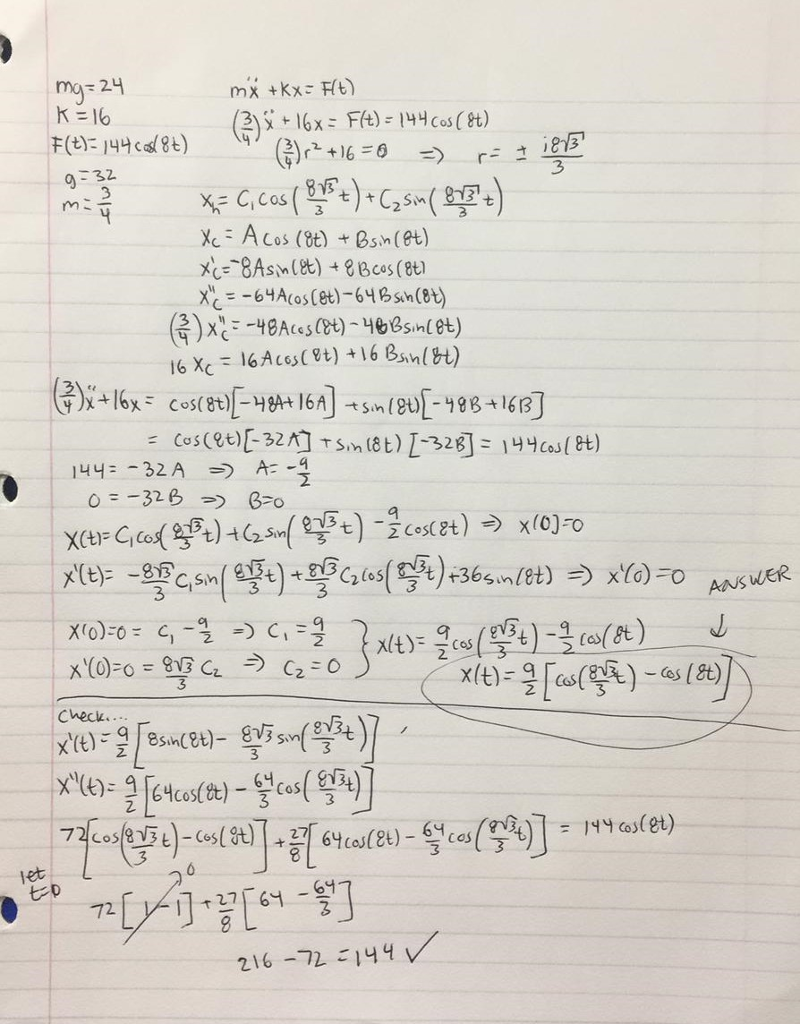 mg=24
K=16
F(t)=144cos(8t)
g=32
m=3/4
mẍ+Kx=F(t)
(3/4)ẍ+16x=F(t)=144cos(8t)
(3/4)r²+16=0 ⇒ r=± i8√3/3
x_h=C₁cos(8√3/3 t)+C₂sin(8√3/3 t)
x_c=Acos(8t)+Bsin(8t)
x'_c=-8Asin(8t)+8Bcos(8t)
x''_c=-64Acos(8t)-64Bsin(8t)
(3/4)x''_c=-48Acos(8t)-48Bsin(8t)
16x_c=16Acos(8t)+16Bsin(8t)
(3/4)ẍ+16x=cos(8t)[-48A+16A]+sin(8t)[-48B+16B]
=cos(8t)[-32A]+sin(8t)[-32B]=144cos(8t)
144=-32A ⇒ A=-9/2
0=-32B ⇒ B=0
X(t)=C₁cos(8√3/3 t)+C₂sin(8√3/3 t)-9/2cos(8t) ⇒ x(0)=0
x'(t)=-8√3/3 C₁sin(8√3/3 t)+8√3/3 C₂cos(8√3/3 t)+36sin(8t) ⇒ x'(0)=0
ANSWER ↓
x(0)=0=C₁-9/2 ⇒ C₁=9/2
x'(0)=0=8√3/3 C₂ ⇒ C₂=0
} x(t)=9/2cos(8√3/3 t)-9/2cos(8t)
x(t)=9/2[cos(8√3/3 t)-cos(8t)]
Check....
x'(t)=9/2[8sin(8t)-8√3/3 sin(8√3/3 t)]
x''(t)=9/2[64cos(8t)-64/3cos(8√3/3 t)]
72[cos(8√3/3 t)-cos(8t)]+27/8[64cos(8t)-64/3cos(8√3/3 t)]=144cos(8t)
let
t=0
72[1-1]→0+27/8[64-64/3]
216-72=144 ✓